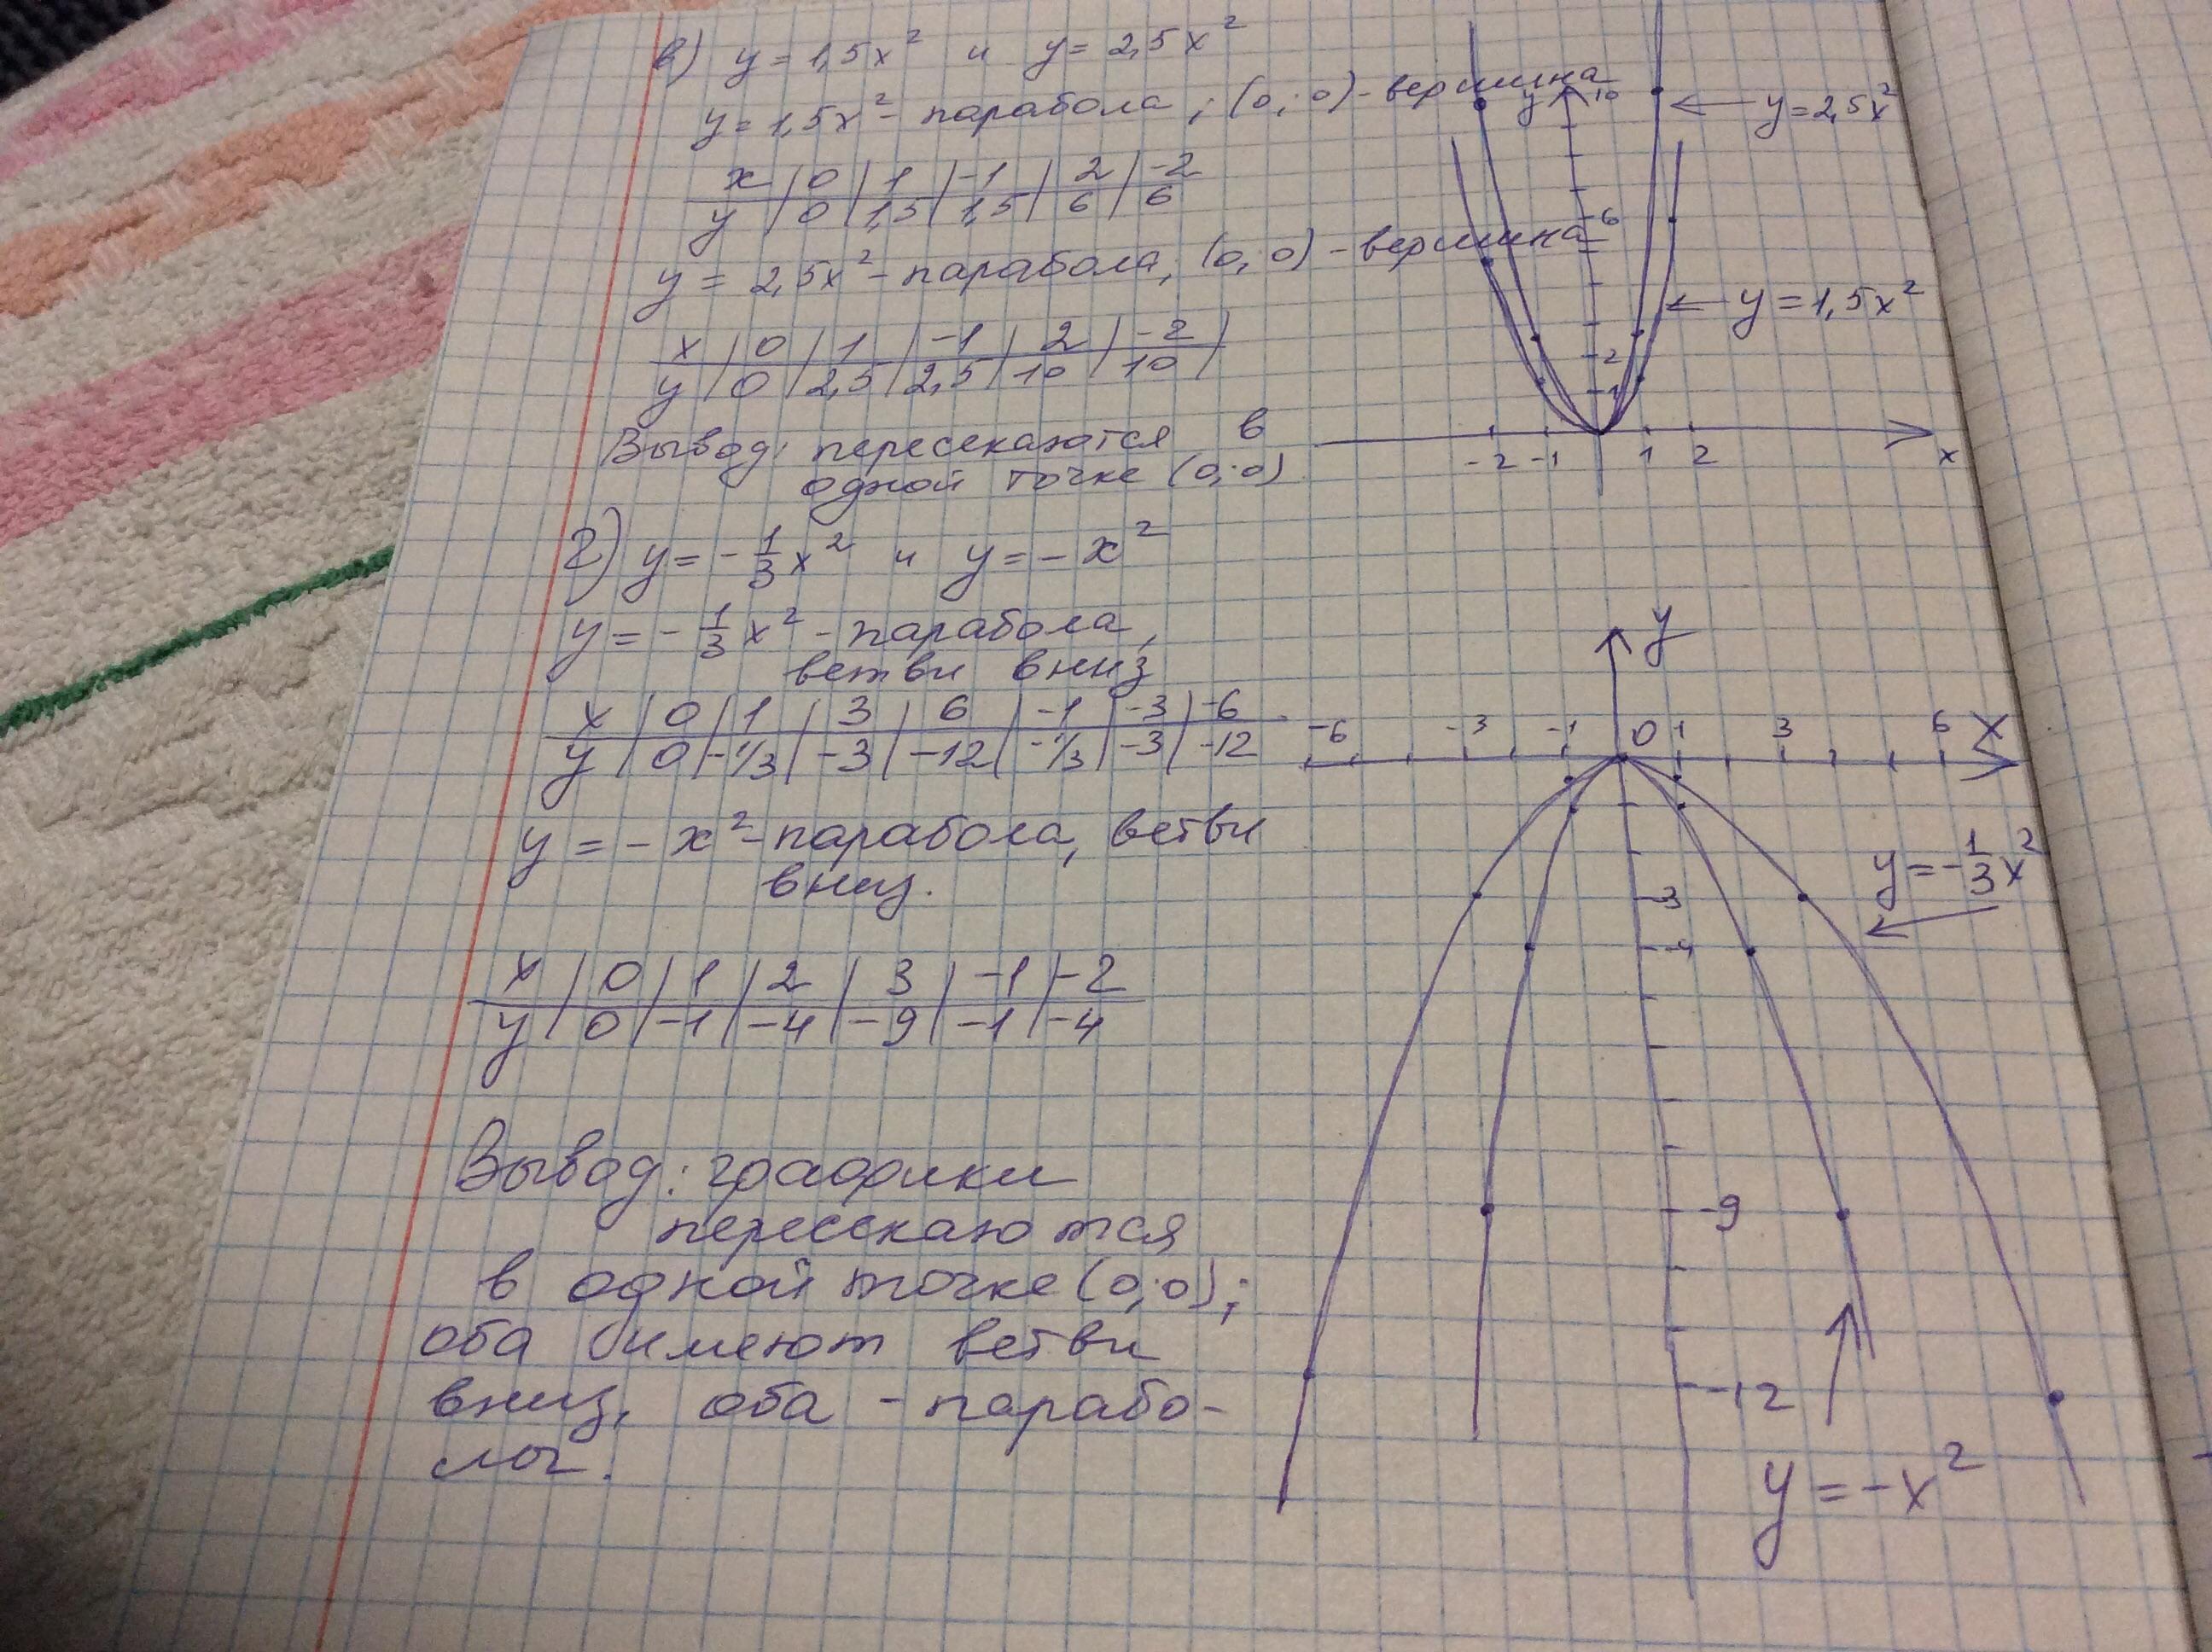 в) y = 1,5x² и y = 2,5x²
y = 1,5x² - парабола; (0; 0) - вершина
x | 0 | 1 | -1 | 2 | -2
y | 0 | 1,5 | 1,5 | 6 | 6
y = 2,5x² - парабола, (0; 0) - вершина
x | 0 | 1 | -1 | 2 | -2 |
y | 0 | 2,5 | 2,5 | 10 | 10 |
Вывод: пересекаются в
одной точке (0; 0)
y
10
6
2
1
-2 -1 1 2 x
y = 2,5x²
y = 1,5x²
г) y = -1/3 x² и y = - x²
y = - 1/3 x² - парабола,
ветви вниз
x | 0 | 1 | 3 | 6 | -1 | -3 | -6
y | 0 | -1/3 | -3 | -12 | -1/3 | -3 | -12
y = - x² - парабола, ветви
вниз.
x | 0 | 1 | 2 | 3 | -1 | -2
y | 0 | -1 | -4 | -9 | -1 | -4
Вывод: графики
пересекаются
в одной точке (0; 0);
оба имеют ветви
вниз, оба - парабо-
лы.
y
-6 -3 -1 0 1 3 6 X
-3
-4
-9
-12
y = -1/3 x²
y = -x²